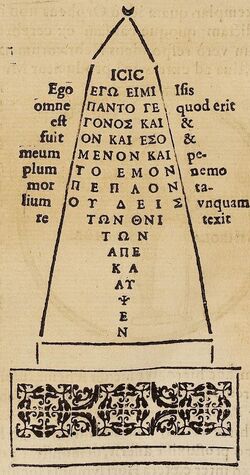 ΙCΙC
Ego ΕΓΩ ΕΙΜΙ Isis
omne ΠΑΝΤΟ ΓΕ quod erit
est ΓΟΝΟΣ ΚΑΙ &
fuit ΟΝ ΚΑΙ ΕΣΟ &
meum ΜΕΝΟΝ ΚΑΙ pe-
plum ΤΟ ΕΜΟΝ nemo
mor ΠΕΠΛΟΝ ta-
lium ΟΥΔΕΙΣ vnquam
re ΤΩΝ ΘΝΙ texit
ΤΩΝ
ΑΠΕ
ΚΑ
ΛΥ
Ψ
Ε
Ν